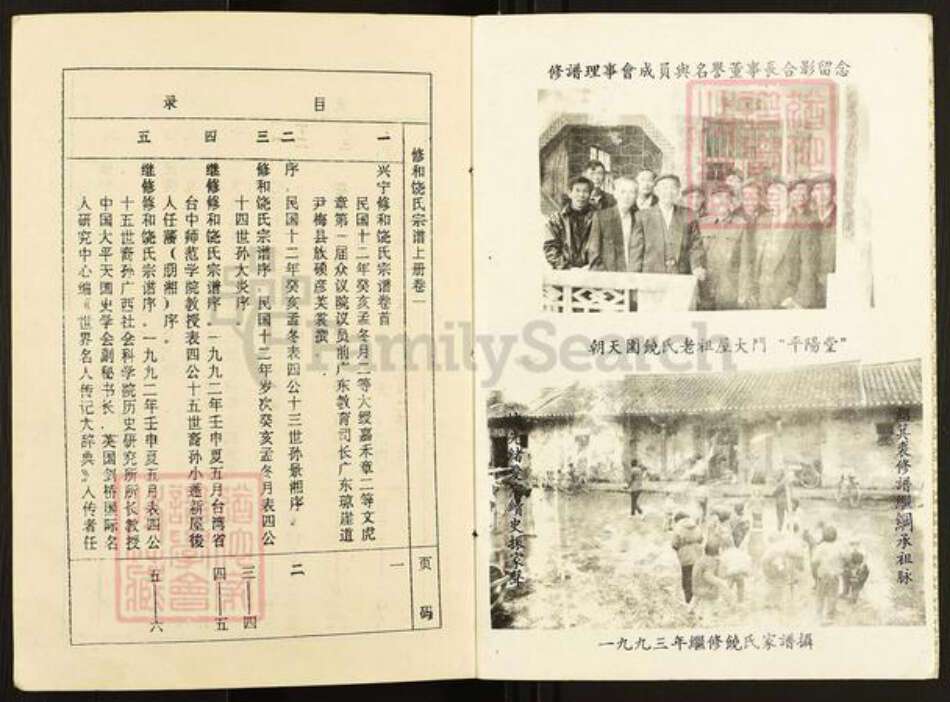 修和饶氏宗谱上册卷一
目
录
页
码
一
兴宁修和饶氏宗谱卷首
民国十二年癸亥孟冬月二等大绶嘉禾章二等文虎
章第一届众议院议员前广东教育司长广东琼崖道
尹梅县族硕彦芙裳撰
一
二
序．民国十二年癸亥孟冬表四公十三世孙景湘序．
二
三
修和饶氏宗谱序．民国十二年岁次癸亥孟冬月表四公
十四世孙大炎序
三——四
四
继修修和饶氏宗谱序．一九九二年壬申夏五月台湾省
台中师范学院教授表四公十五世裔孙小莲新屋後
人任藩（朋湘）序．
四——五
五
继修修和饶氏宗谱序．一九九二年壬申夏五月表四公
十五世裔孙广西社会科学院历史研究所所长教授
中国太平天国史学会副秘书长．英国剑桥国际名
人研究中心编《世界名人传记大辞典》人传者任
五——六
修譜理事會成員與名譽董事長合影留念
朝天圍饒氏老祖屋大門“平陽堂”
裘修譜繼綱承祖脉
史振家聲
一九九三年繼修饒氏家譜攝
FamilySearch